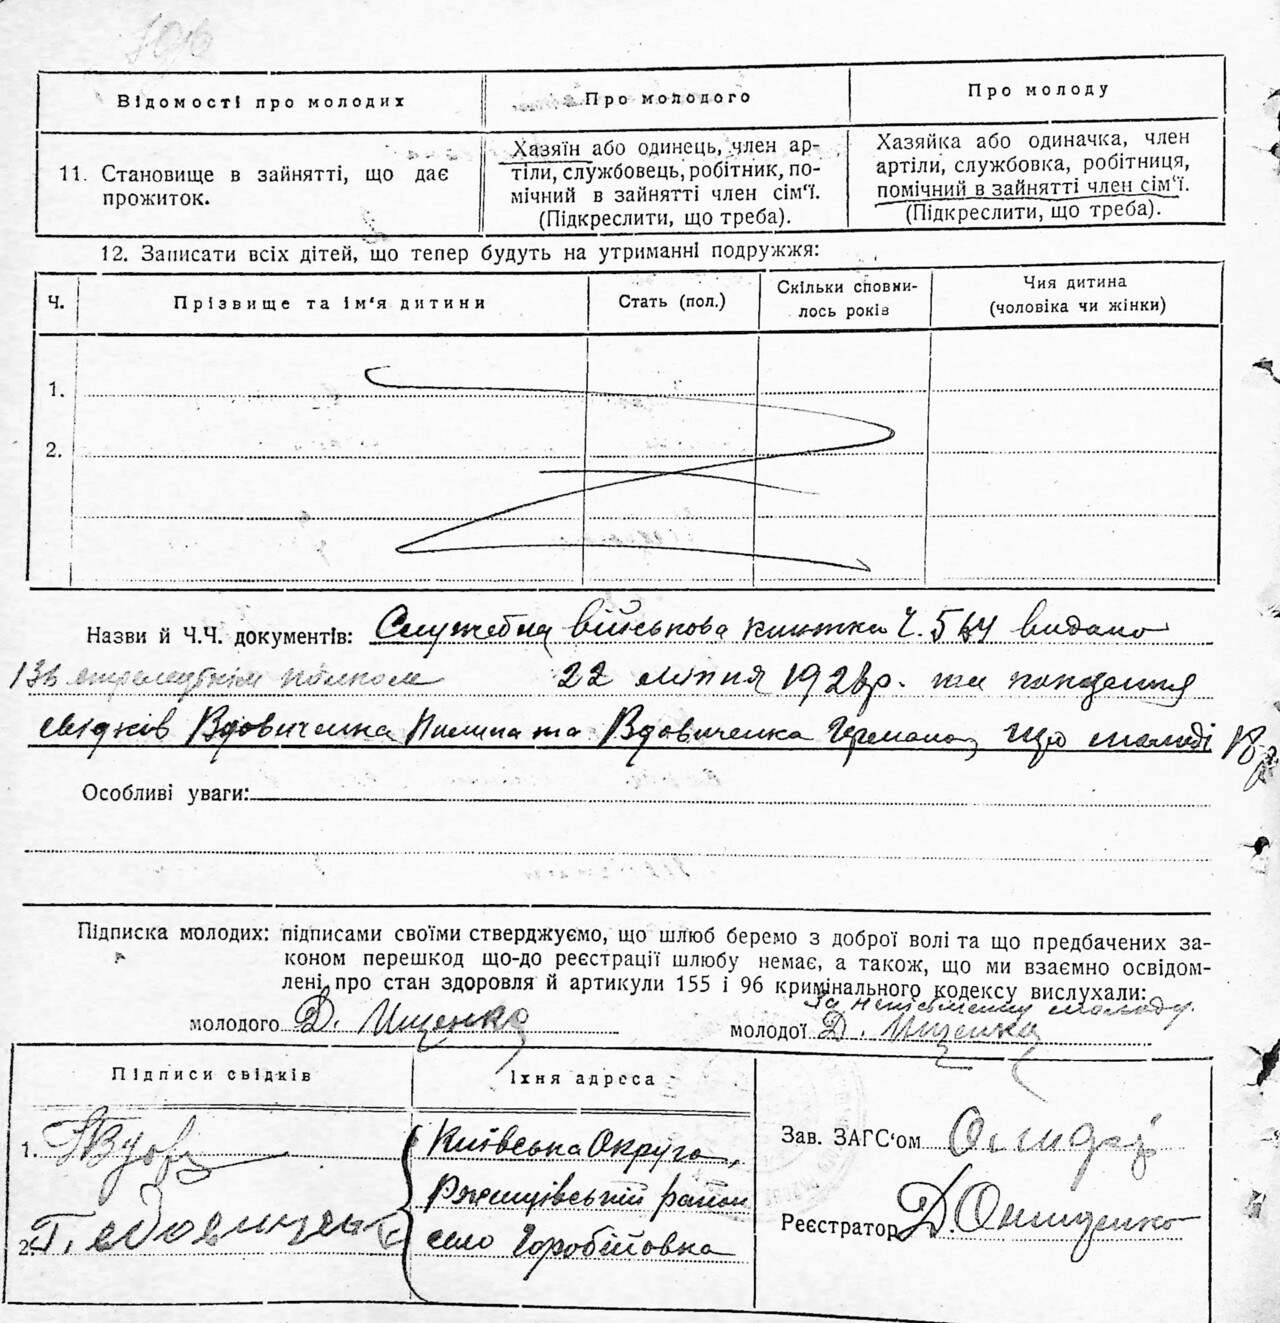 Відомості про молодих
Про молодого
Про молоду
11. Становище в зайнятті, що дає
прожиток.
Хазяїн або одинець, член ар-
тіли, службовець, робітник, по-
мічний в зайнятті член сім'ї.
(Підкреслити, що треба).
Хазяйка або одиначка, член
артіли, службовка, робітниця,
помічний в зайнятті член сім'ї.
(Підкреслити, що треба).
12. Записати всіх дітей, що тепер будуть на утриманні подружжя:
Ч.
Прізвище та ім'я дитини
Стать (пол.)
Скільки сповни-
лось років
Чия дитина
(чоловіка чи жінки)
1.
2.
Назви й Ч.Ч. документів: Службова військова книжка Ч. видано
полком 22 липня 1928р. та
свідків Вдовиченка Пилипа та Вдовиченка Германа, що молоді
Особливі уваги:
Підписка молодих: підписами своїми стверджуємо, що шлюб беремо з доброї волі та що предбачених за-
коном перешкод що-до реєстрації шлюбу немає, а також, що ми взаємно освідом-
лені про стан здоровля й артикули 155 і 96 кримінального кодексу вислухали:
За неписьменну молоду
молодого Д. Іщенко
молодої Д. Іщенко
Підписи свідків
Їхня адреса
1.
2.
Київська Округа,
Ржищівський район
село Горобіївка
Зав. ЗАГС'ом
Реєстратор Д. Онищенко